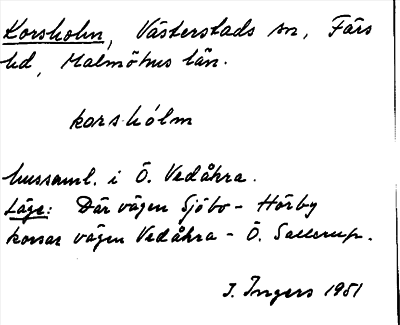 Korsholm, Västerstads sn, Färs
hd, Malmöhus län.
kors hólm
hussaml. i Ö. Vedåkra.
Läge: Där vägen Sjöbo - Hörby
korsar vägen Vedåkra - Ö. Sallerup.
I. Ingers 1951